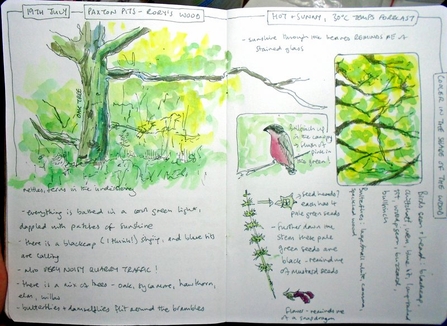 19TH JULY
PAXTON PITS - RORY'S WOOD
HOT + SUNNY, 30°C TEMPS FORECAST
- sunshine through the leaves REMINDS ME of
stained glass
OAK TREE
nettles, ferns in the understorey
- everything is bathed in a cool green light,
dappled with patches of sunshine
- there is a blackcap (I think!) singing, and blue tits
are calling
- also VERY NOISY QUARRY TRAFFIC!
- there is a mix of trees - oak, sycamore, hawthorn,
elm, willow
- butterflies + damselflies flit around the brambles
bullfinch up
in the canopy
flash of
pink in
the green!
seed heads?
each has 4
pale green seeds
- further down the
stem these pale
green seeds are
black - remind me
of mustard seeds
flower - reminds me
of a snapdragon
COOLER IN THE SHADE OF THE WOOD
Birds seen + heard: blackcap,
chiffchaff, wren, blue tit, long-tailed
tit, woodpigeon, buzzard,
bullfinch
Butterflies: large/small white, comma,
speckled wood